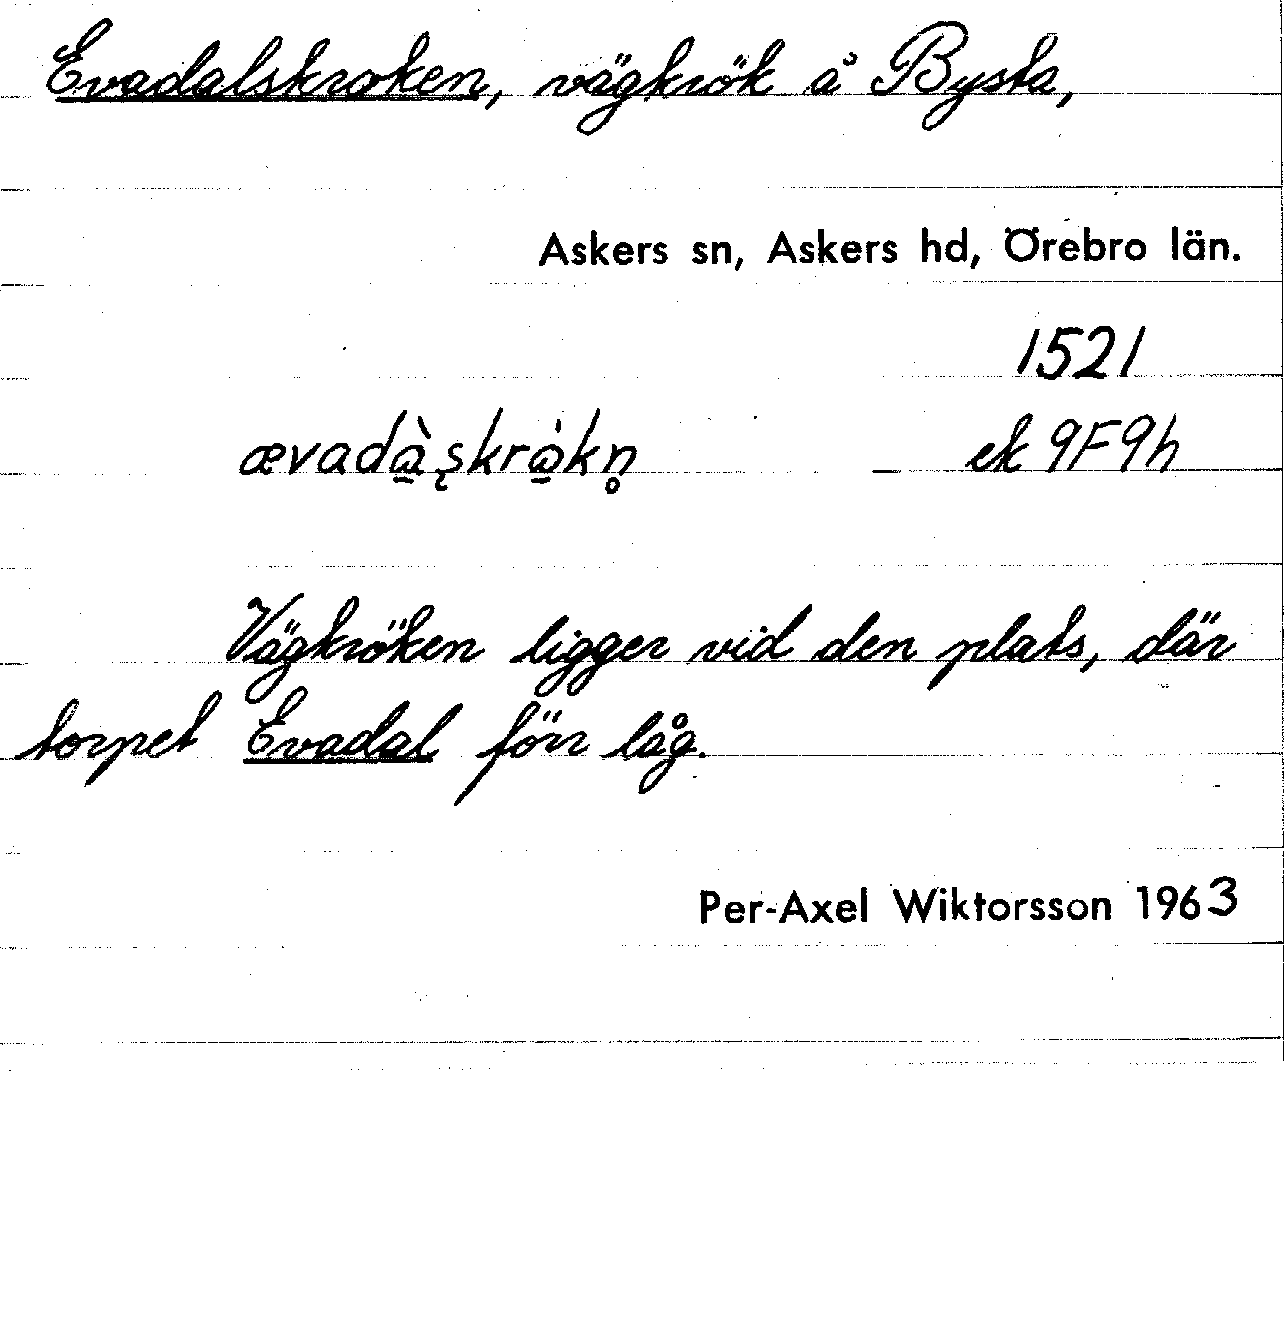 Evadalskroken, vägkrök å Bysta,
Askers sn, Askers hd, Örebro län.
1521
ævadàskrò̱kn̥ ek 9F9h
Vägkröken ligger vid den plats, där
torpet Evadal förr låg.
Per-Axel Wiktorsson 1963